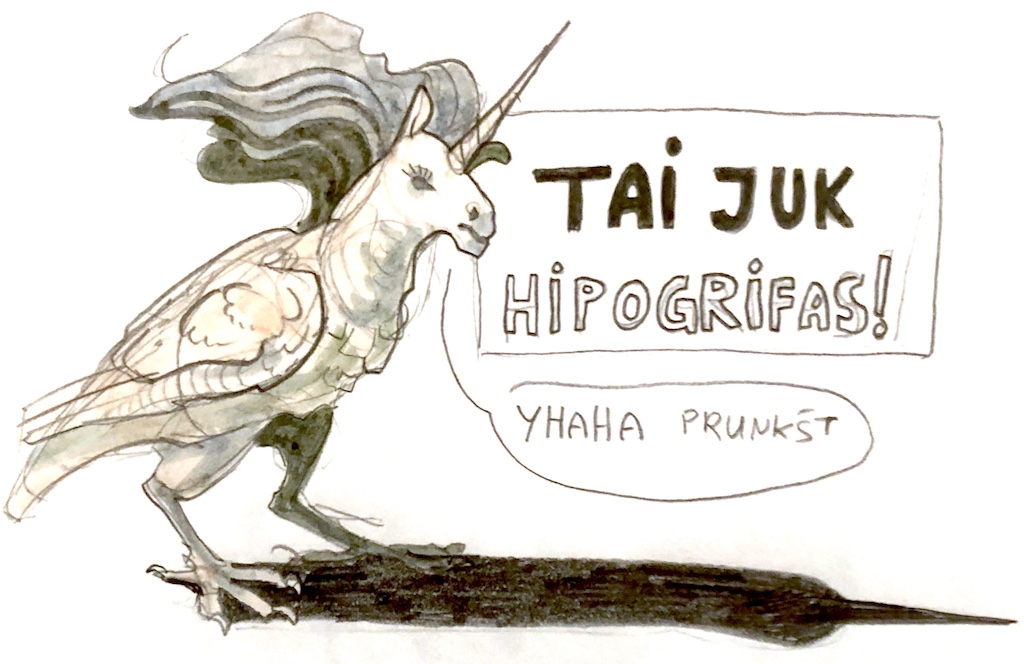 TAI JUK
HIPOGRIFAS!
YHAHA PRUNKŠT